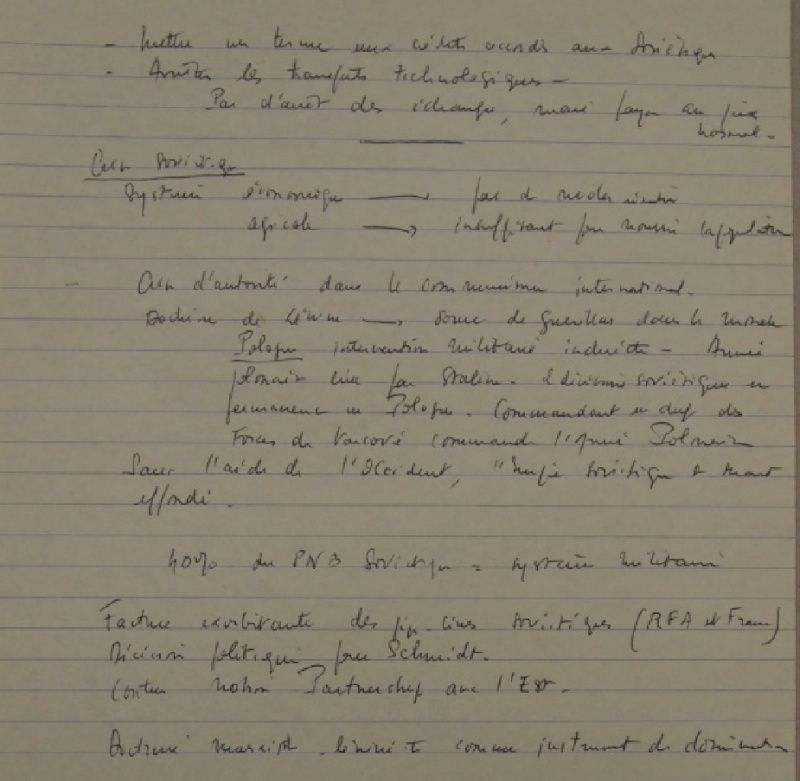 - Mettre un terme aux crédits accordés aux Soviétiques
- Arrêter les transferts technologiques -
Pas d'arrêt des échanges, mais payer au prix
normal -
Crise Soviétique
Système économique → pas de
agricole → insuffisant pour nourrir la population
- Crise d'autorité dans le communisme international.
Doctrine de Lénine → source de guerillas dans le monde
Pologne intervention militaire indirecte - Armée
polonaise par Staline. 2 divisions soviétiques en
permanence en Pologne. Commandant en chef des
Forces de Varsovie commande l'armée Polonaise
Sans l'aide de l'Occident, l'Empire Soviétique
effondré.
40% du PNB Soviétique = système militaire
Facture exorbitante des pipe-lines soviétiques (RFA et France)
Décision politique pour Schmidt.
Contre notion Partnerchip avec l'Est.
marxiste-léniniste comme instrument de domination